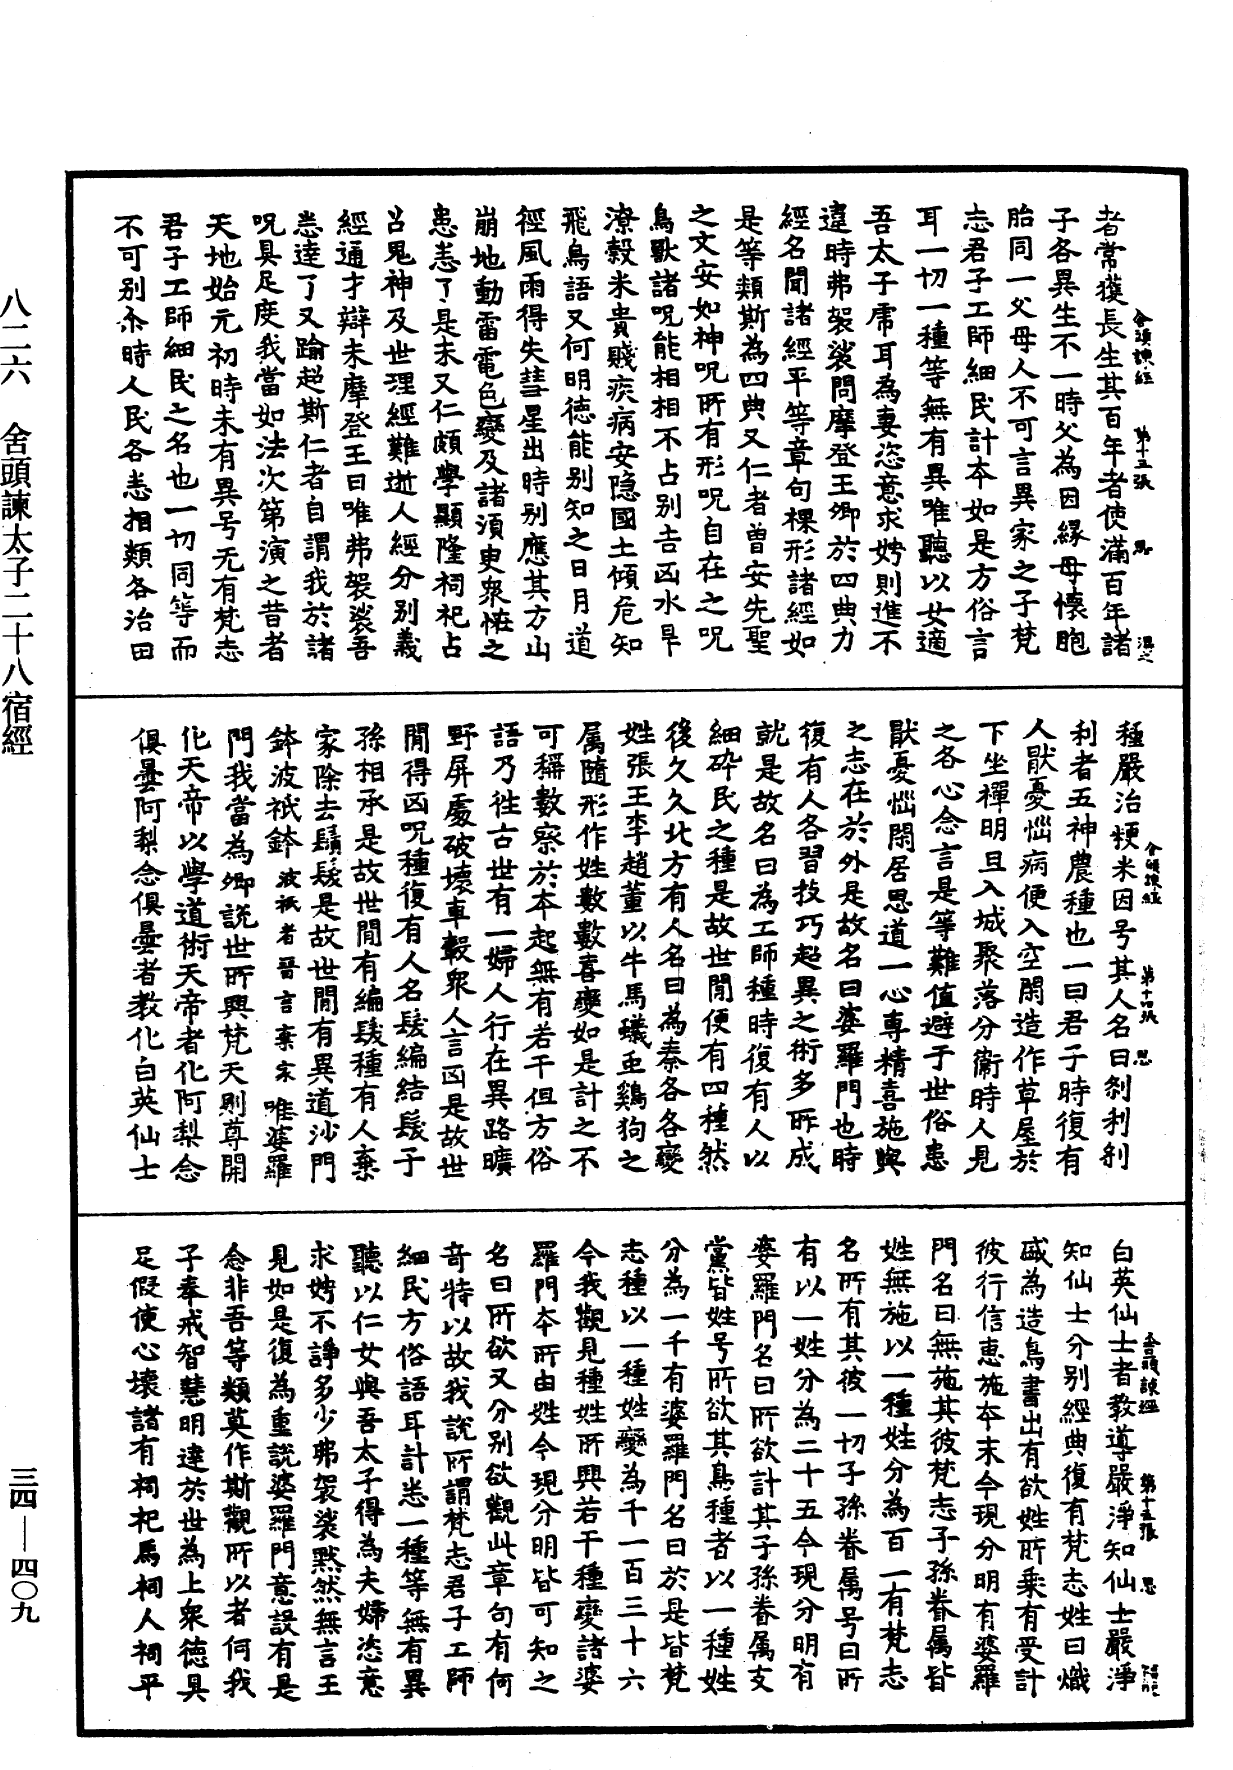 者常獲長生其百年者使滿百年諸
子各異生不一時父為因緣母懷胞
胎同一父母人不可言異家之子梵
志君子工師細民計本如是方俗言
耳一切一種等無有異唯聽以女適
吾太子虎耳為妻恣意求娉則進不
違時弗袈裟問摩登王卿於四典力
經名聞諸經平等章句樔形諸經如
是等類斯為四典又仁者曾安先聖
之文安如神呪所有形呪自在之呪
鳥獸諸呪能相相不占別吉凶水旱
潦穀米貴賤疾病安隱國土傾危知
飛鳥語又何明德能別知之日月道
徑風雨得失彗星出時別應其方山
崩地動雷電色變及諸須臾衆恠之
患悉了是未又仁頗學顯隆祠祀占
呂鬼神及世理經難逝人經分別義
經通才辯未摩登王曰唯弗袈裟吾
悉達了又踰超斯仁者自謂我於諸
呪具足庋我當如法次第演之昔者
天地始元初時未有異号无有梵志
君子工師細民之名也一切同等而
不可別尒時人民各悉相類各治田
舍頭諫經 第十三張 思
種嚴治粳米因号其人名曰刹利刹
利者五神農種也一曰君子時復有
人猒憂惱病便入空閑造作草屋於
下坐禪明旦入城聚落分衞時人見
之各心念言是等難值避于世俗患
猒憂惱閑居思道一心專精喜施與
之志在於外是故名曰婆羅門也時
復有人各習技巧超異之術多所成
就是故名曰為工師種時復有人以
細碎民之種是故世閒便有四種然
後久久北方有人名曰為秦各各變
姓張王李趙董以牛馬蟻䖝鷄狗之
属隨形作姓數數喜變如是計之不
可稱數察於本起無有若干但方俗
語乃徃古世有一婦人行在異路曠
野屏處破壞車轂衆人言凶是故世
閒得凶呪種復有人名髮編結髮子
孫相承是故世閒有編髮種有人棄
家除去鬚髮是故世閒有異道沙門
鉢波祇鉢波祇者晉言棄家唯婆羅
門我當為卿說世所興梵天則尊開
化天帝以學道術天帝者化阿梨念
俱曇阿梨念俱曇者教化白英仙士
舍頭諫經 第十四張 思
白英仙士者教導嚴淨知仙士嚴淨
知仙士分別經典復有梵志姓曰熾
盛為造鳥書出有欲姓所乘有受計
彼行信惠施本末今現分明有婆羅
門名曰無施其彼梵志子孫眷属皆
姓無施以一種姓分為百一有梵志
名所有其彼一切子孫眷属号曰所
有以一姓分為二十五今現分明有
婆羅門名曰所欲計其子孫眷属支
黨皆姓号所欲其鳥種者以一種姓
分為一千有婆羅門名曰於是皆梵
志種以一種姓變為千一百三十六
今我觀見種姓所興若干種變諸婆
羅門本所由姓今現分明皆可知之
名曰所欲又分別欲觀此章句有何
竒特以故我說所謂梵志君子工師
細民方俗語耳計悉一種等無有異
聽以仁女與吾太子得為夫婦恣意
求娉不諍多少弗袈裟默然無言王
見如是復為重說婆羅門意設有是
念非吾等類莫作斯觀所以者何我
子奉戒智慧明達於世為上衆德具
足假使心壞諸有祠祀馬祠人祠平
舍頭諫經 第十五張 思
八二六 舍頭諫太子二十八宿經
三四—四〇九